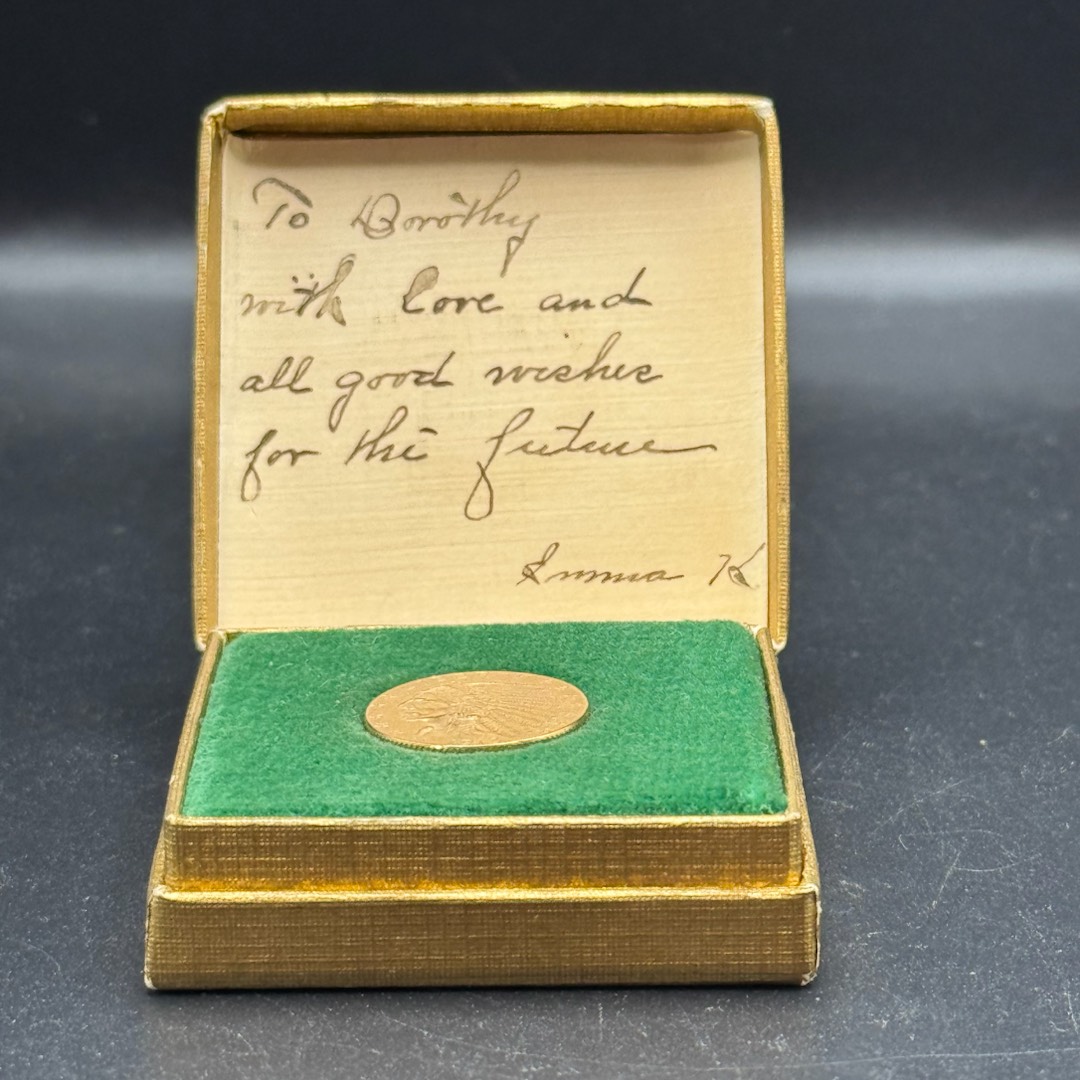 To Dorothy
with love and
all good wishes
for the future
Emma K